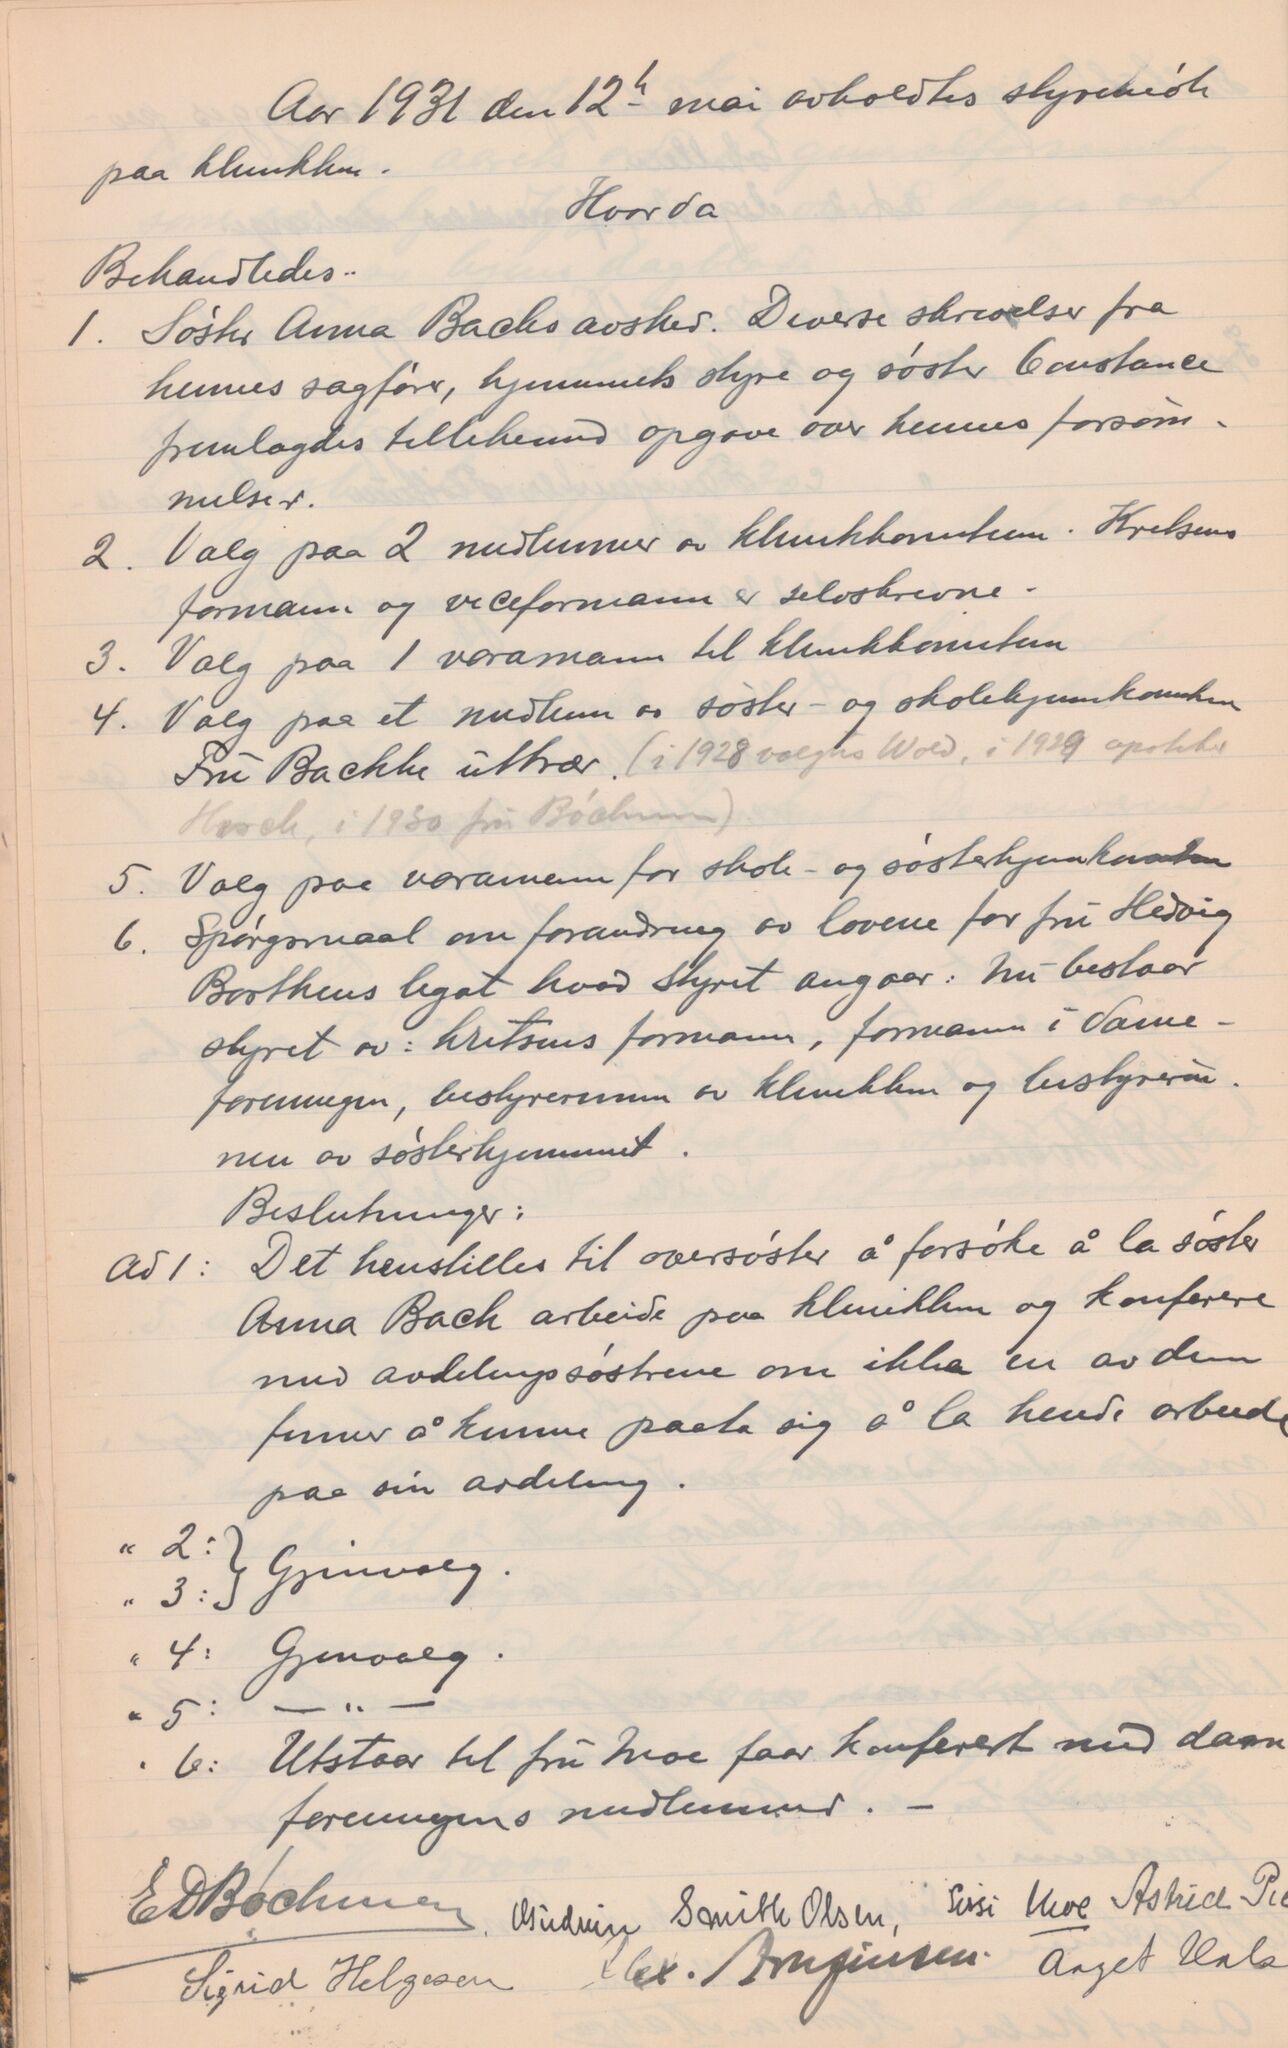 Aar 1931 den 12te mai avholdtes styremöte
paa klinikken.
Hvor da
Behandledes:
1. Söster Anna Backs avsked. Diverse skrivelser fra
hennes sagförer, hjemmets styre og söster Constance
fremlagdes tillikemed opgave over hennes forsöm-
melser.
2. Valg paa 2 medlemmer av klinikkomiteen. Kretsens
formann og viceformann er selvskrevne.
3. Valg paa 1 varamann til klinikkomiteen
4. Valg paa et medlem av söster- og skolehjemkomiteen
Frü Backke uttrær. (i 1928 valgtes Wold, i 1929 apoteker
i 1930 frü Böchmann)
5. Valg paa varamenn for skole- og sösterhjemkomiteen
6. Spörgsmaal om forandring av lovene for frü Hedvig
Borthens legat hvad styret angaar: Nü bestaar
styret av: kretsens formann, formann i dame-
foreningen, bestyrerinnen av klinikken og bestyrerin-
nen av sösterhjemmet.
Beslutninger:
Ad 1: Det henstilles til oversöster å forsöke å la söster
Anna Back arbeide paa klinikken og konferere
med avdelingssöstrene om ikke en av dem
finner å kunne paata sig å la hende arbeide
paa sin avdeling.
" 2: } Gjenvalg.
" 3: }
" 4: Gjenvalg.
" 5: — " —
" 6: Utstaar til frü Moe faar konferert med dame
foreningens medlemmer. —
E D Böchman, Gudrun Smith Olsen, Sissi Moe Astrid
Sigrid Helgesen Alex. Aaget